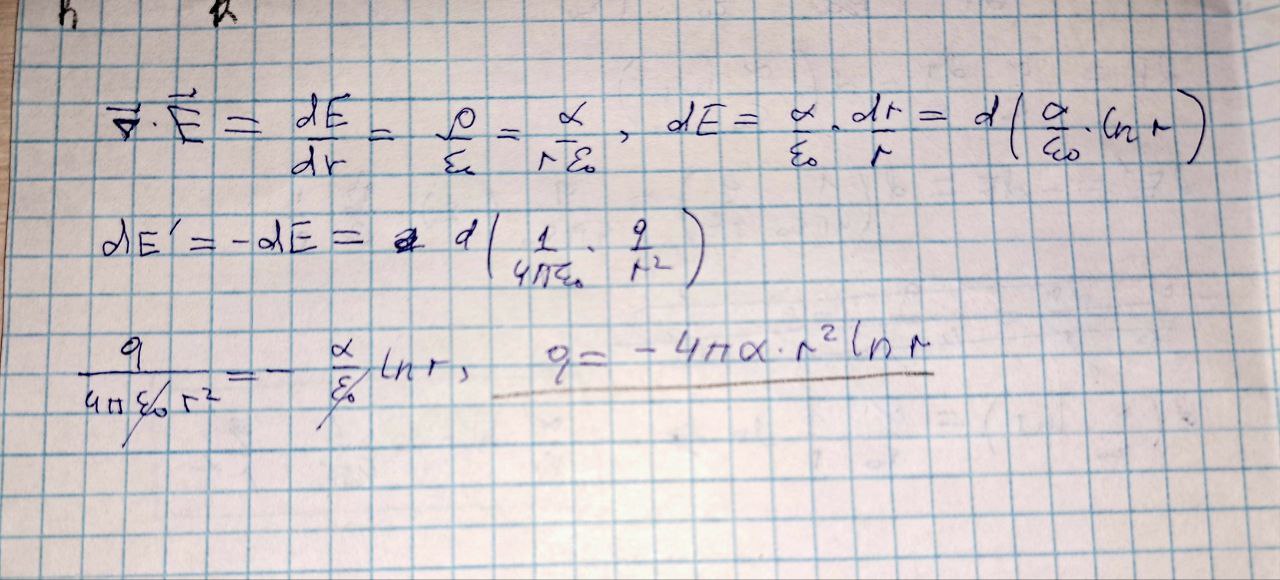 ∇⃗ · E⃗ = dE/dr = ρ/ε₀ = α/(rε₀), dE = α/ε₀ · dr/r = d(α/ε₀ · ln r)
dE' = -dE = d(1/(4πε₀) · q/r²)
q/(4πε₀r²) = - α/ε₀ ln r, q = -4πα · r² ln r